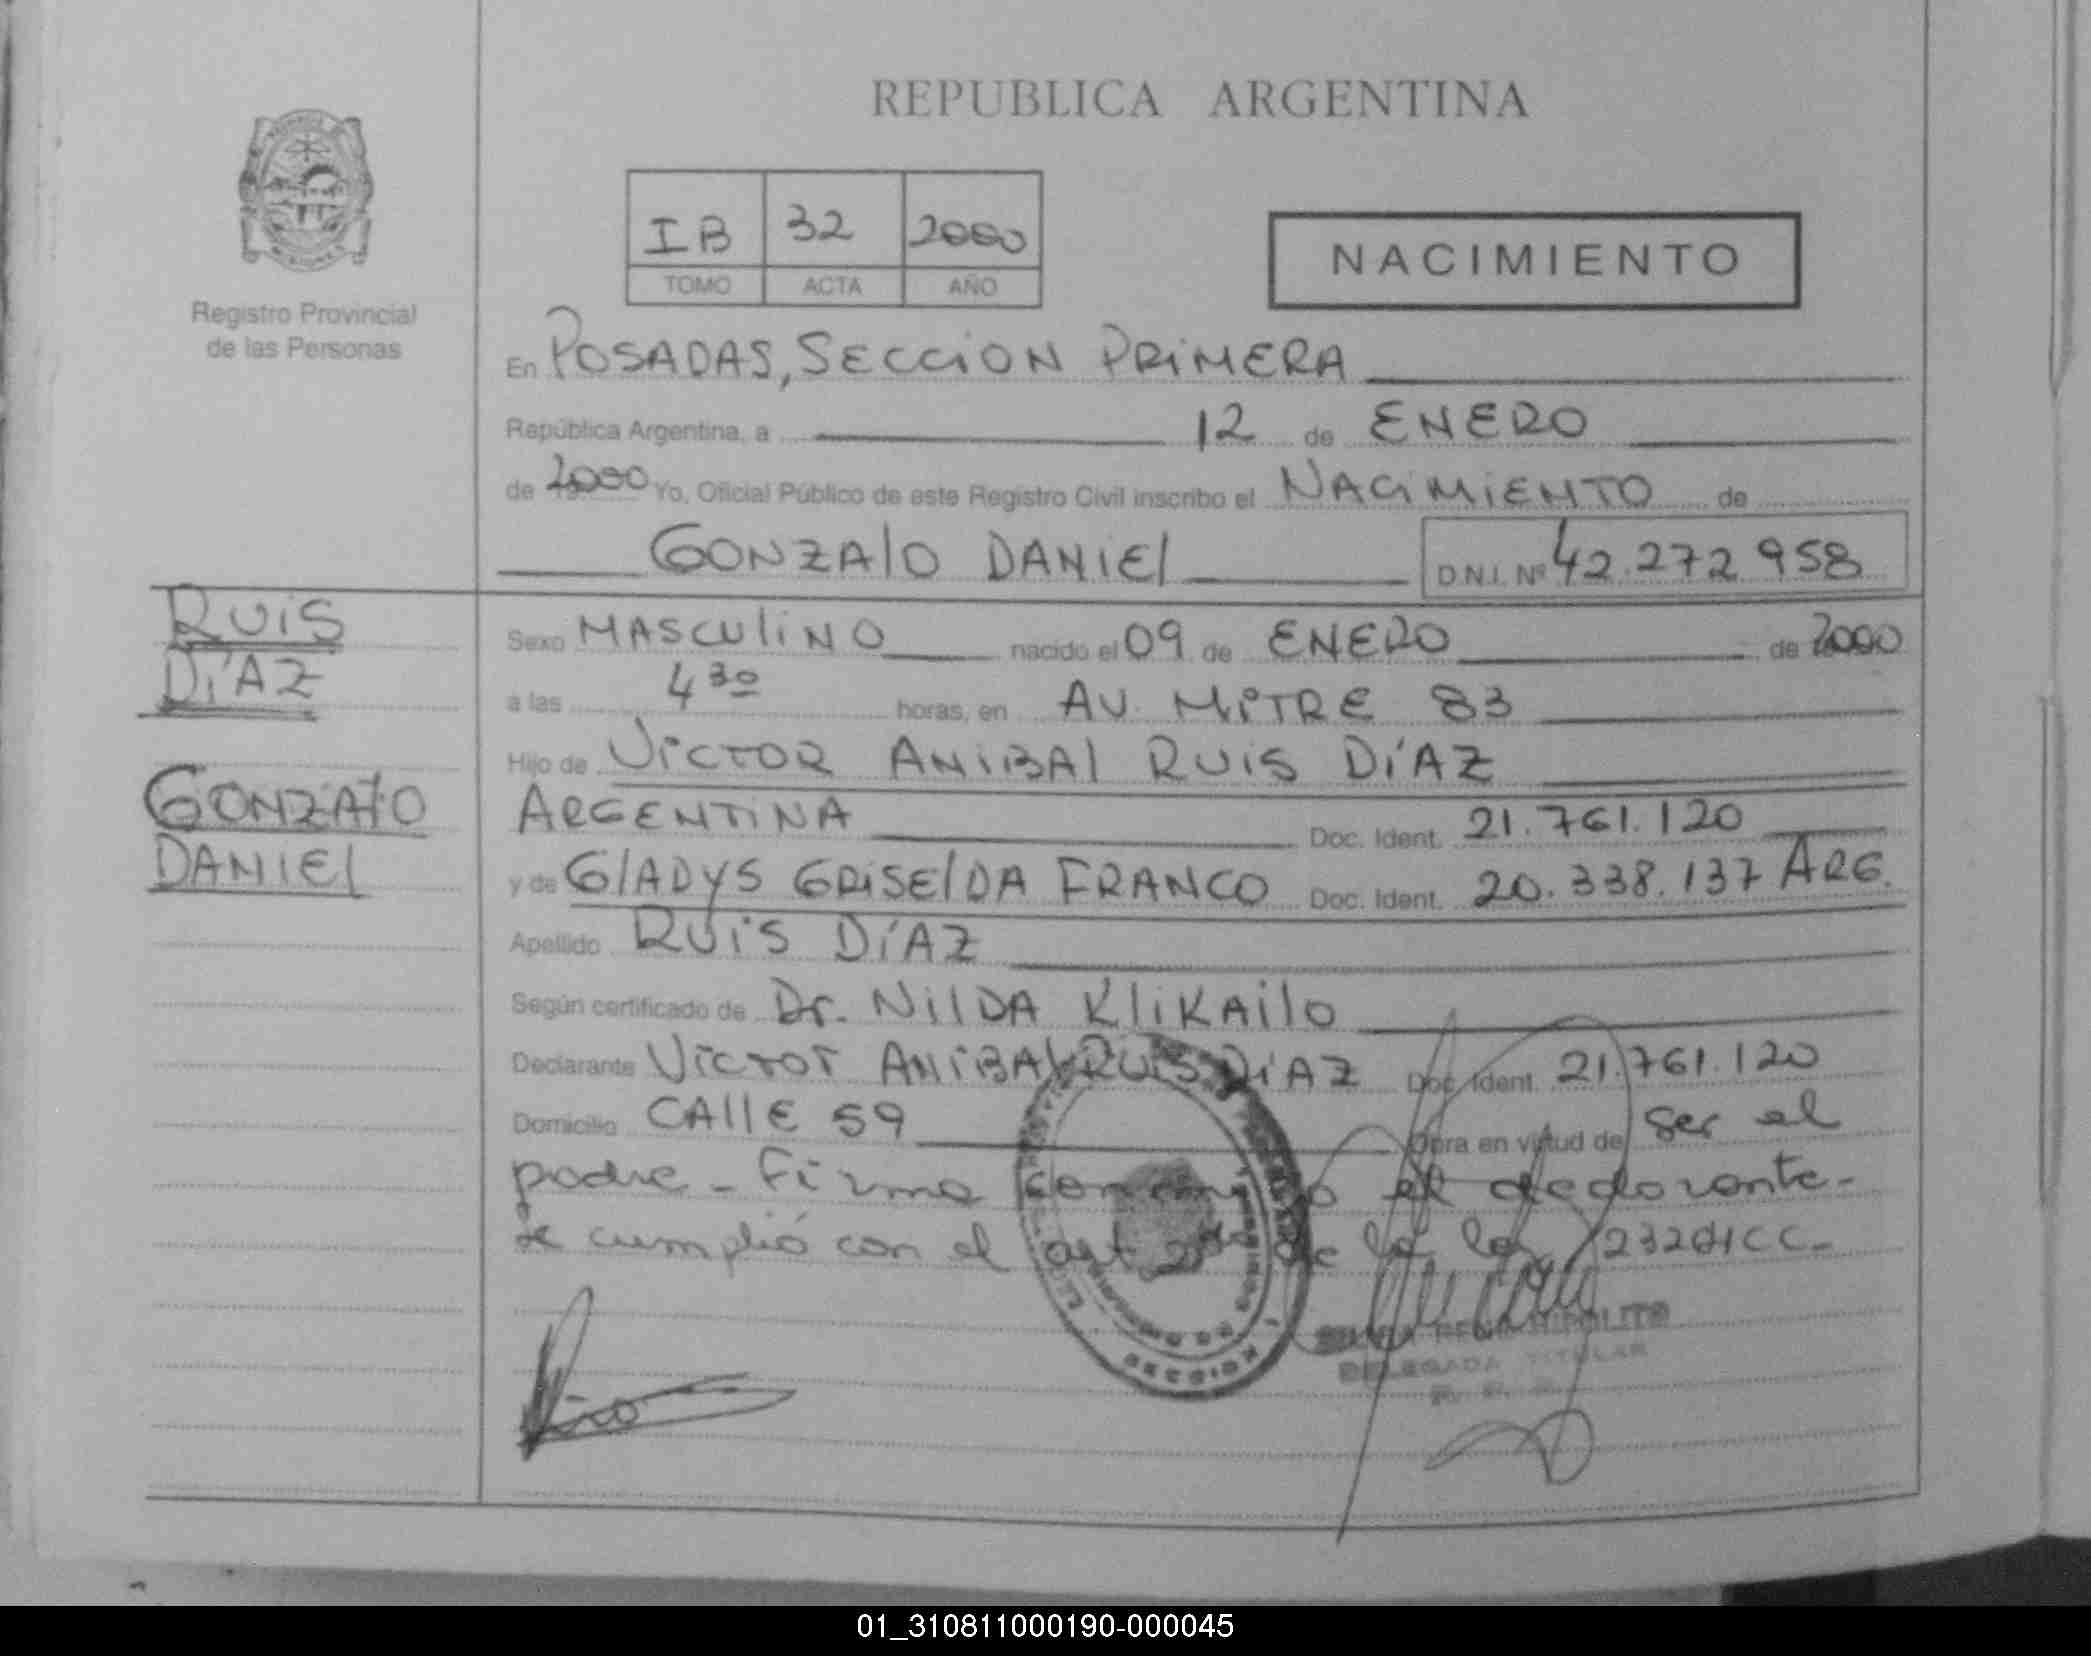 REPUBLICA ARGENTINA
Registro Provincial
de las Personas
IB 32 2000
TOMO ACTA AÑO
NACIMIENTO
En POSADAS, SECCION PRIMERA
República Argentina, a 12 de ENERO
de 2000 Yo, Oficial Público de este Registro Civil inscribo el NACIMIENTO de
GONZALO DANIEL D.N.I. Nº 42.272.958
RUIS
DÍAZ
GONZALO
DANIEL
Sexo MASCULINO nacido el 09 de ENERO de 2000
a las 4 30 horas, en AV. MITRE 83
Hijo de VICTOR ANIBAL RUIS DÍAZ
ARGENTINA Doc. Ident. 21.761.120
y de GLADYS GRISELDA FRANCO Doc. Ident. 20.338.137 ARG.
Apellido RUIS DÍAZ
Según certificado de Dr. NILDA KLIKAILO
Declarante VICTOR ANIBAL RUIS DIAZ Doc. Ident. 21.761.120
Domicilio CALLE 59 Obra en virtud de ser el
padre - Firma conmigo el declarante-
se cumplió con el art de la ley
DELEGADA TITULAR
01_310811000190-000045